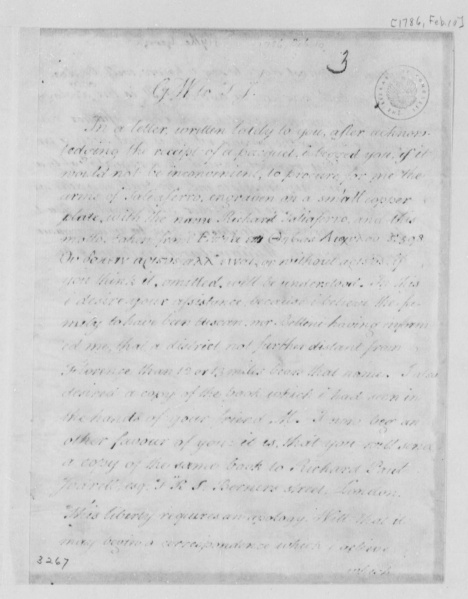 [1786, Feb. 10]
3
G.W. to T.J.
In a letter, written lately to you, after acknow-
ledging the receipt of a pacquet, i begged you, if it
would not be inconvenient, to procure for me the
arms of Taliaferro, engraven on a small copper
plate, with the name Richard Taliaferro, and this
motto, taken from
or without if
you think it, omitted, will be understood. In this
i desire your assistance, because i believe the fa-
mily to have been tuscan, mr Bellini having inform
ed me, that a district not further distant from
Florence than 12 or 15 miles bears that name. I also
desired a copy of the book, which i had seen in
the hands of your friend M. I now beg an
other favour of you: it is, that you will send
a copy of the same book to Richard Paul
Jodrell esq; F R S Berners street, London.
This liberty requires an apology. Hite that it
may begin a correspondence which i believe
3267